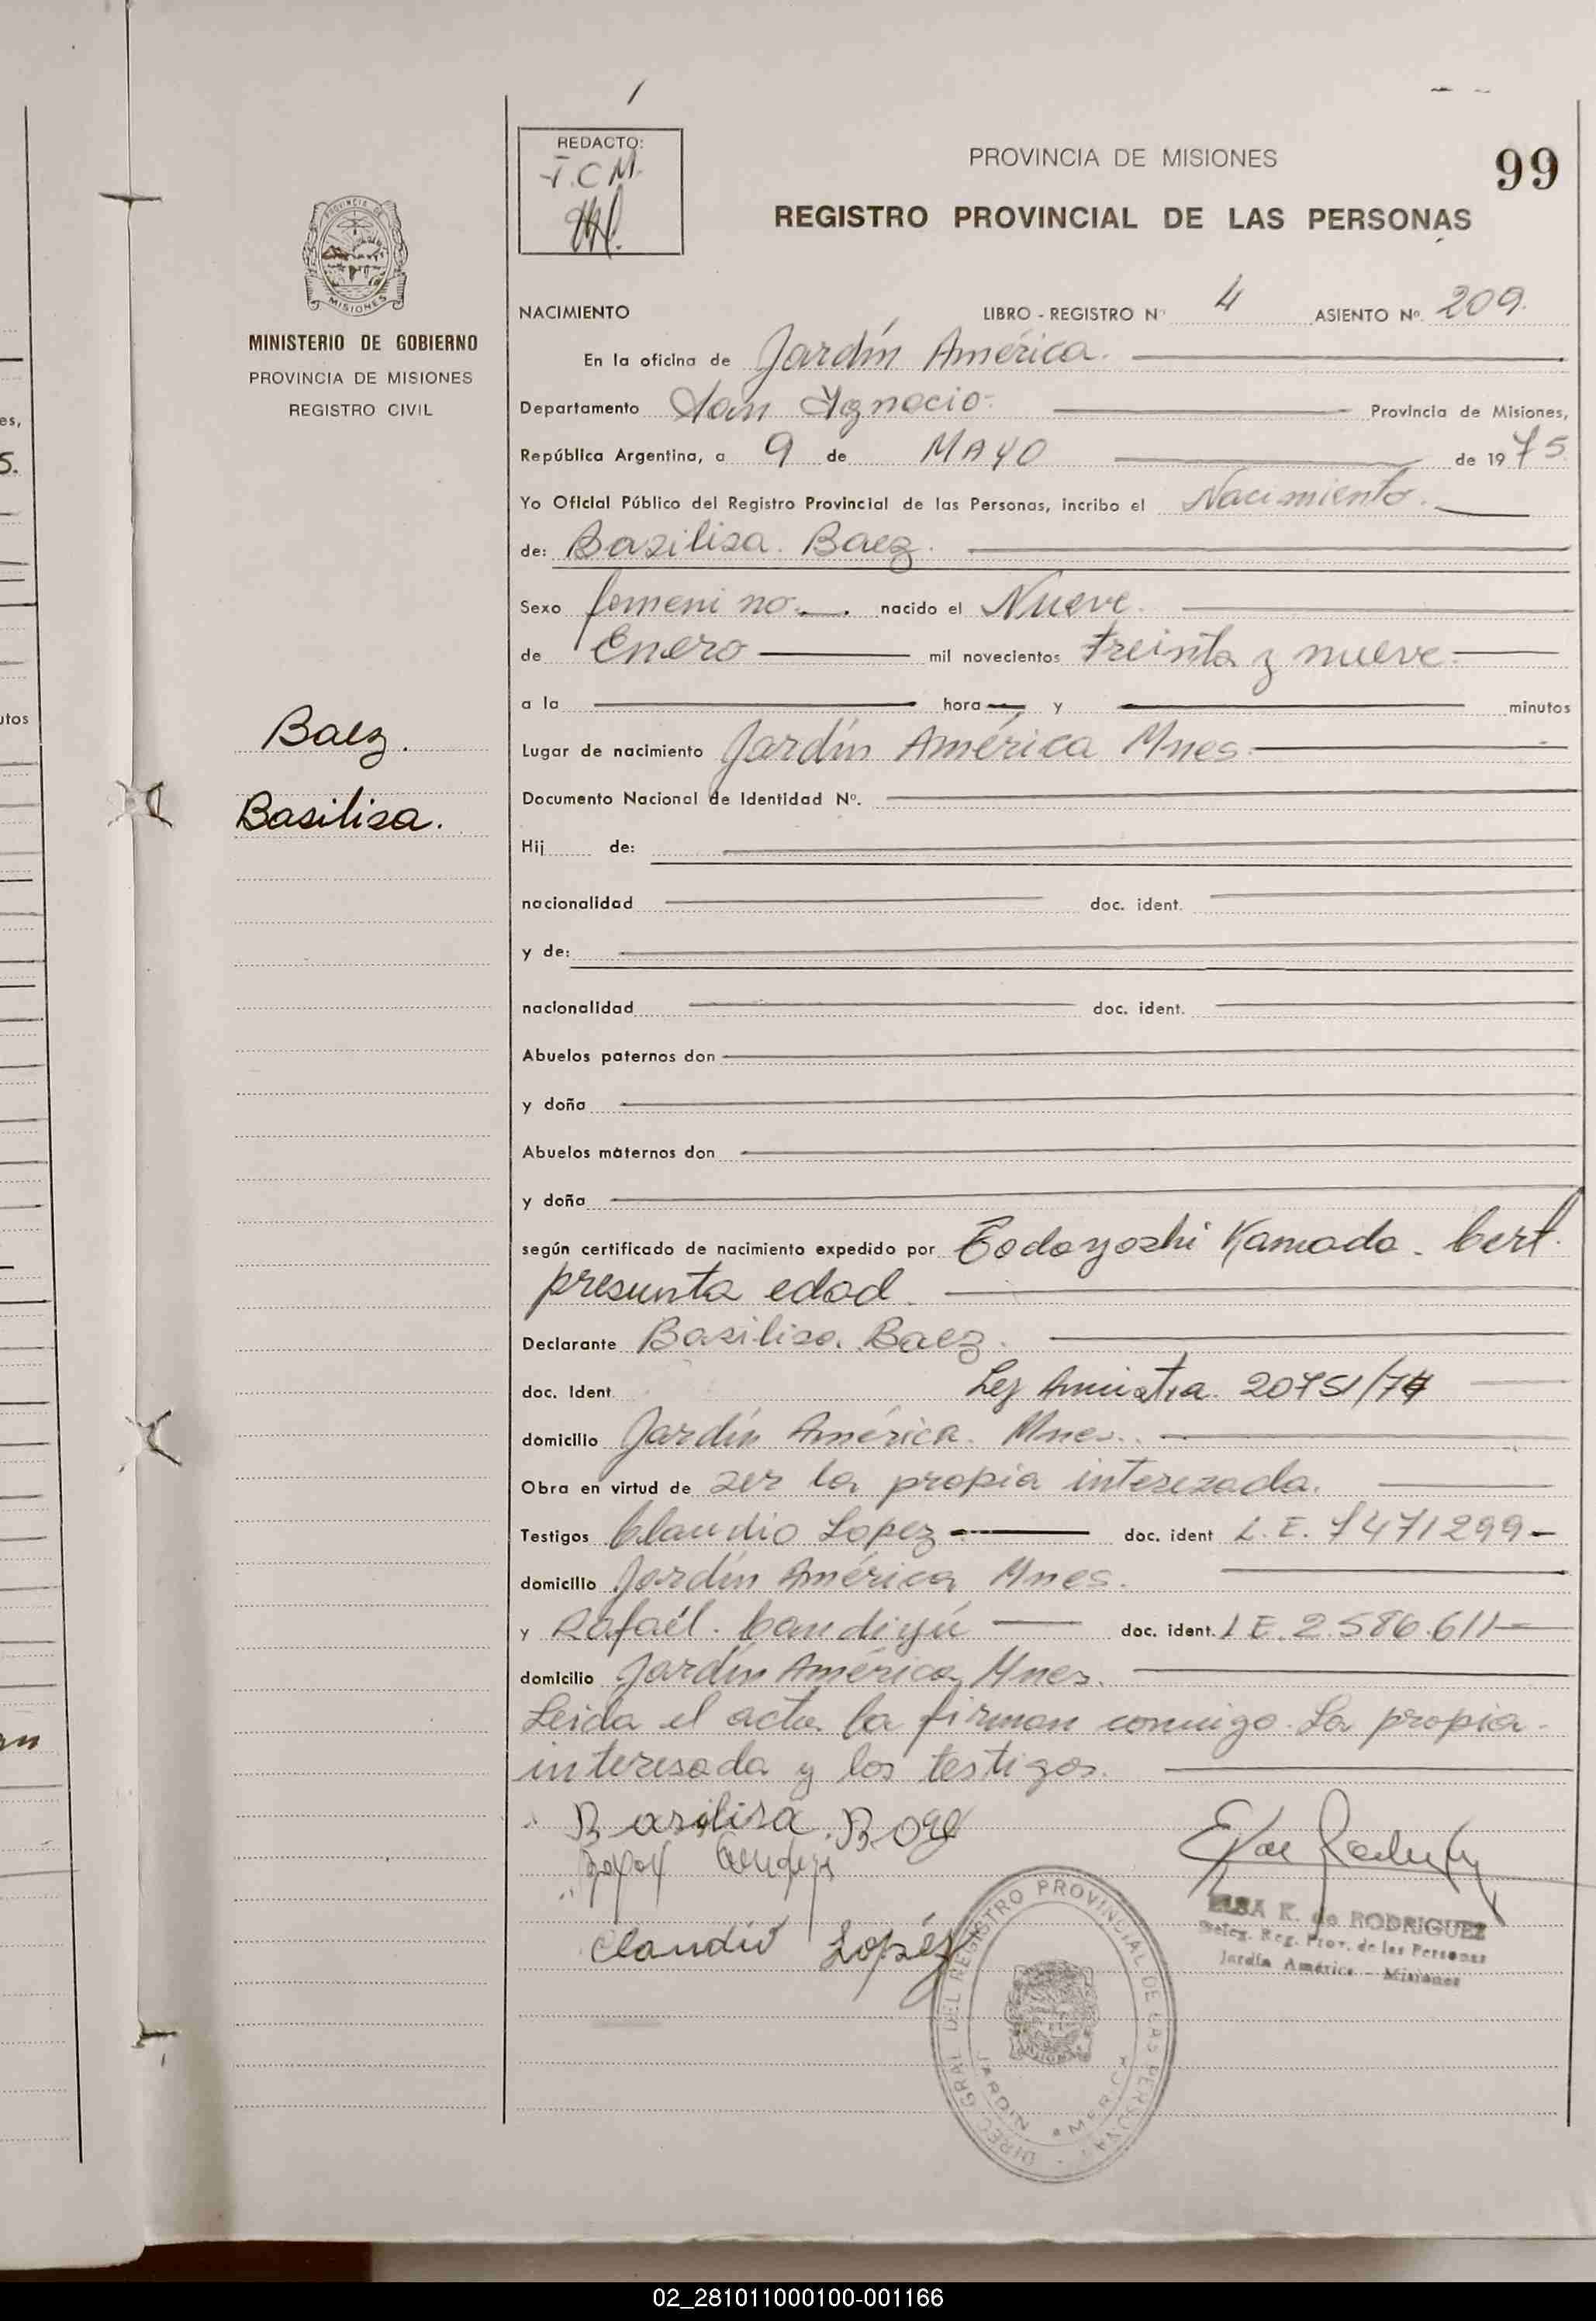 es,
5.
utos
REDACTO:
T.C.M.
PROVINCIA DE MISIONES
99
REGISTRO PROVINCIAL DE LAS PERSONAS
PROVINCIA DE
MISIONES
MINISTERIO DE GOBIERNO
PROVINCIA DE MISIONES
REGISTRO CIVIL
Baez.
Basilisa.
NACIMIENTO LIBRO - REGISTRO Nº 4 ASIENTO Nº 209.
En la oficina de Jardín América.
Departamento San Ygnacio. Provincia de Misiones,
República Argentina, a 9 de MAYO de 1975
Yo Oficial Público del Registro Provincial de las Personas, incribo el Nacimiento.
de: Basilisa. Baez.
Sexo femenino. nacido el Nueve.
de Enero mil novecientos treinta y nueve.
a la hora y minutos
Lugar de nacimiento Jardín América Mnes.
Documento Nacional de Identidad Nº.
Hij de:
nacionalidad doc. ident.
y de:
nacionalidad doc. ident.
Abuelos paternos don
y doña
Abuelos maternos don
y doña
según certificado de nacimiento expedido por Todoyoshi Kamada. Cert.
presunta edad.
Declarante Basilisa. Baez.
doc. Ident. Ley Amnistia. 20751/74
domicilio Jardín América. Mnes.
Obra en virtud de ser la propia interezada.
Testigos Claudio Lopez doc. ident L.E. 7471299
domicilio Jardín América Mnes.
y Rafaél. Candiyú doc. ident. L E. 2.586.611
domicilio Jardín América Mnes.
Leida el acta la firman conmigo. La propia
interesada y los testigos.
Basilisa. Boez
Claudio Lopéz
ELSA K. de RODRIGUEZ
Deleg. Reg. Prov. de las Personas
Jardín América - Misiones
DIREC. GRAL DEL REGISTRO PROVINCIAL DE LAS PERSONAS
JARDIN AMERICA
02_281011000100-001166